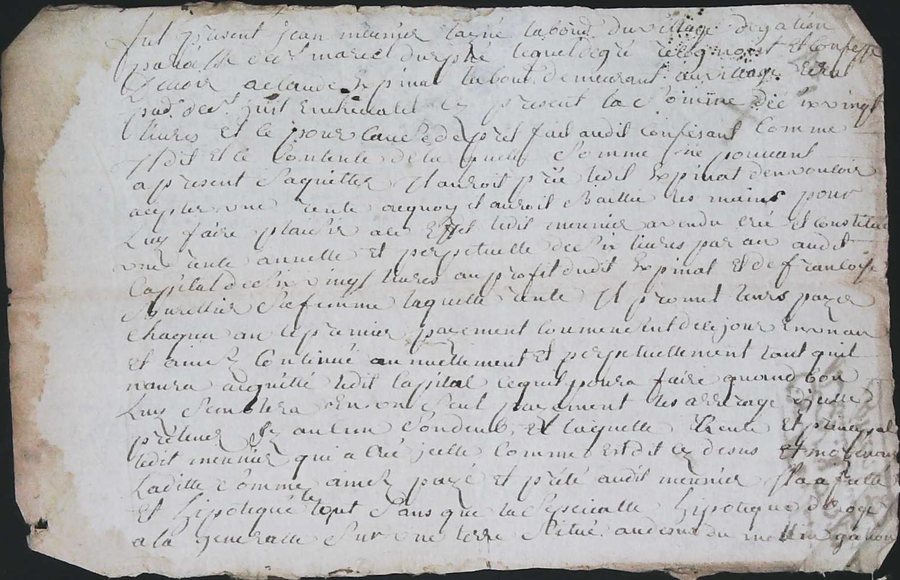 fut present jean meunier laisné labourd. du village de gation
paroisse de st marcel durphé lequel degré recognoist et confesse
devoir a claude Espinat labour. demeurant au village
parr. de st just En chevallet present la somme de six vingt
livres et ce pour cause de pret fait audit confesant comme
Il dit et se Contente de la quelle Somme ne pouvant
a present Saquitter Il auroit prié ledit Espinat de vouloir
acepter une rente a quoy il auroit les mains pour
Luy faire plaisir a cet Effet ledit meunier a vendu créé et constitué
une rente annuelle et perpetuelle de Six livres par an audit
Capital de Six vingt livres au profit dudit Espinat et de francoise
Sa femme laquelle rente Il promet leurs payer
chaqun an le premier payement Commencent de ce jour En un an
et ainsi Continué annuellement et perpetuellement tant quil
naura acquitté ledit Capital ce quil poura faire quand bon
Luy Semblera En un Seul payement les arrerage
prelever Sy aucun Sondeub, et laquelle Rente et principal
ledit meunier qui a Créé jcelle comme est dit cy desus et moyenant
Laditte Somme ainsi payé et prété audit meunier Il a assis
et hipotiqué tout Sans que la Specialle hipotique deroge
a la generalle Sur une terre Situé audit gation